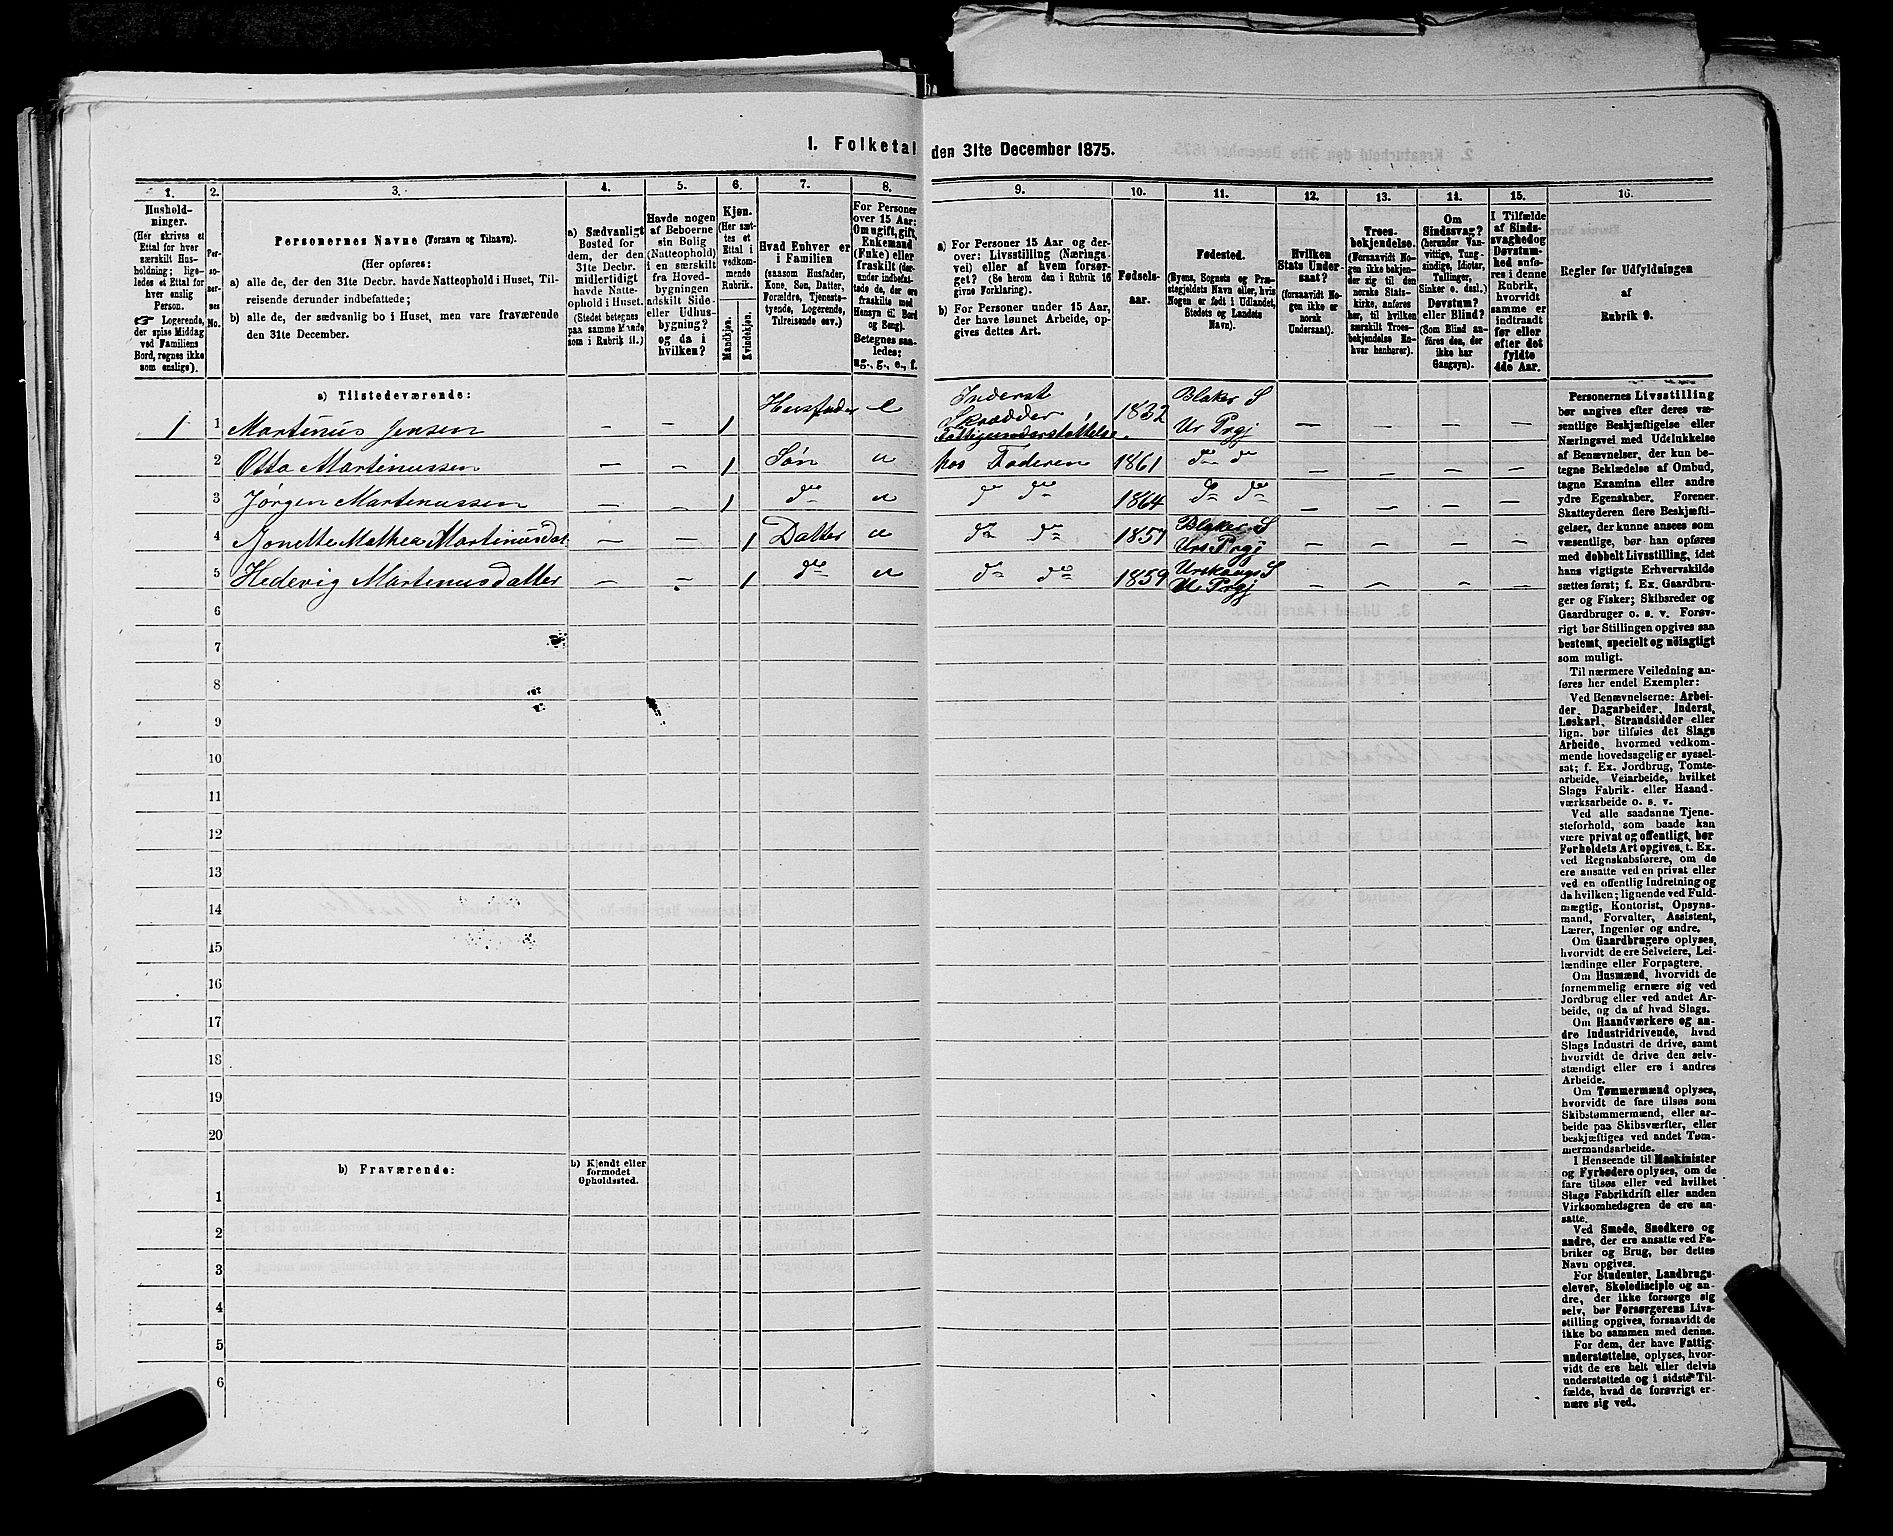 1. Folketal den 31te December 1875.
1. 2. 3. 4. 5. 6. 7. 8. 9. 10. 11. 12. 13. 14. 15. 16.
Hushold-
ninger.
(Her skrives et
Ettal for hver
særskilt Hus-
holdning; lige-
ledes et Ettal for
hver enslig
Person.
☞ Logerende,
der spise Middag
ved Familiens
Bord, regnes ikke
som enslige).
Per-
so-
ner-
nes
No.
Personernes Navne (Fornavn og Tilnavn).
(Her opføres:
a) alle de, der den 31te Decbr. havde Natteophold i Huset, Til-
reisende derunder indbefattede;
b) alle de, der sædvanlig bo i Huset, men vare fraværende
den 31te December.
a) Sædvanligt
Bosted for
dem, der den
31te Decbr.
midlertidigt
havde Natte-
ophold i Huset.
(Stedet betegnes
paa samme Maade
som i Rubrik 11.)
Havde nogen
af Beboerne
sin Bolig
(Natteophold)
i en særskilt
fra Hoved-
bygningen
adskilt Side-
eller Udhus-
bygning?
og da i
hvilken?
Kjøn.
(Her sæt-
tes et
Ettal i
vedkom-
mende
Rubrik.
Mandkjøn.
Kvindekjøn.
Hvad Enhver er
i Familien
(saasom Husfader,
Kone, Søn, Datter,
Forældre, Tjeneste-
tyende, Logerende,
Tilreisende osv.)
For Personer
over 15 Aar:
Om ugift, gift,
Enkemand
(Enke) eller
fraskilt (der-
under indbefat-
tede de, der ere
fraskilte med
Hensyn til Bord
og Seng).
Betegnes saa-
ledes:
ug., g., e., f.
a) For Personer 15 Aar og der-
over: Livsstilling (Nærings-
vei) eller af hvem forsør-
get? (Se herom den i Rubrik 16
givne Forklaring).
b) For Personer under 15 Aar,
der have lønnet Arbeide, op-
gives dettes Art.
Fødsels-
aar.
Fødested.
(Byens, Sognets og Præ-
stegjeldets Navn eller, hvis
Nogen er født i Udlandet,
Stedets og Landets
Navn).
Hvilken
Stats Under-
saat?
(forsaavidt No-
gen ikke er
norsk
Undersaat).
Troes-
bekjendelse.
(Forsaavidt No-
gen ikke bekjen-
der sig til den
norske Stats-
kirke, anføres
her, til hvilken
særskilt Troes-
bekjendelse En-
hver henhører).
Om
Sindssvag?
(herunder Van-
vittige, Tung-
sindige, Idioter,
Tullinger,
Sinker o. desl.)
Døvstum?
eller Blind?
(Som Blind an-
føres den, der
ikke har
Gangsyn).
I Tilfælde
af Sinds-
svaghed og
Døvstum-
hed anfø-
res i denne
Rubrik,
hvorvidt
samme er
indtraadt
før eller
efter det
fyldte
4de Aar.
Regler for Udfyldningen
af
Rubrik 9.
a) Tilstedeværende:
1 1 Martinus Jensen — — 1 Husfader e Inderst Skrædder Fattigunderstøttelse. 1832 Blaker S Ur Prgj — — — —
2 Otto Martinussen — — 1 Søn u hos Faderen 1861 do do — — — —
3 Jørgen Martinussen — — 1 do u do do 1864 do do — — — —
4 Jonette Mathea Martinusdat — — 1 Datter u do do 1857 Blaker S Urs Prgj — — — —
5 Hedevig Martinusdatter — — 1 do u do do 1859 Urskougs S U Prgj — — — —
6
7
8
9
10
11
12
13
14
15
16
17
18
19
20
b) Fraværende:
b) Kjendt eller
formodet
Opholdssted.
1
2
3
4
5
6
Personernes Livsstilling
bør angives efter deres væ-
sentlige Beskjæftigelse eller
Næringsvei med Udelukkelse
af Benævnelser, der kun be-
tegne Beklædelse af Ombud,
tagne Examina eller andre
ydre Egenskaber. Forener
Skatteyderen flere Beskjæfti-
gelser, der kunne ansees som
væsentlige, bør han opføres
med dobbelt Livsstilling, idet
hans vigtigste Erhvervskilde
sættes først; f. Ex. Gaardbru-
ger og Fisker; Skibsreder og
Gaardbruger o. s. v. Forøv-
rigt bør Stillingen opgives saa
bestemt, specielt og nøiagtigt
som muligt.
Til nærmere Veiledning an-
føres her endel Exempler:
Ved Benævnelserne: Arbei-
der, Dagarbeider, Inderst,
Løskarl, Strandsidder eller
lign. bør tilføies det Slags
Arbeide, hvormed vedkom-
mende hovedsagelig er syssel-
sat; f. Ex. Jordbrug, Tomte-
arbeide, Veiarbeide, hvilket
Slags Fabrik- eller Haand-
værksarbeide o. s. v.
Ved alle saadanne Tjene-
steforhold, som baade kan
være privat og offentligt, bør
Forholdets Art opgives, t. Ex.
ved Regnskabsførere, om de
ere ansatte ved en privat eller
ved en offentlig Indretning og
da hvilken; lignende ved Fuld-
mægtig, Kontorist, Opsyns-
mand, Forvalter, Assistent,
Lærer, Ingeniør og andre.
Om Gaardbrugere oplyses,
hvorvidt de ere Selveiere, Lei-
lændinge eller Forpagtere.
Om Husmænd, hvorvidt de
fornemmelig ernære sig ved
Jordbrug eller ved andet Ar-
beide, og da af hvad Slags.
Om Haandværkere og an-
dre Industridrivende, hvad
Slags Industri de drive, samt
hvorvidt de drive den selv-
stændigt eller ere i andres
Arbeide.
Om Tømmermænd oplyses,
hvorvidt de fare tilsøs som
Skibstømmermænd, eller ar-
beide paa Skibsværfter, eller
beskjæftiges ved andet Tøm-
mermandsarbeide.
I Henseende til Maskinister
og Fyrbødere oplyses, om de
fare tilsøs eller ved hvilket
Slags Fabrikdrift eller anden
Virksomhedsgren de ere an-
satte.
Ved Smede, Snedkere og
andre, der ere ansatte ved Fa-
briker og Brug, bør dettes
Navn opgives.
For Studenter, Landbrugs-
elever, Skoledisciple og an-
dre, der ikke forsørge sig
selv, bør Forsørgerens Livs-
stilling opgives, forsaavidt de
ikke bo sammen med denne.
For dem, der have Fattig-
understøttelse, oplyses, hvor-
vidt de ere helt eller delvis
understøttede og i sidste Til-
fælde, hvad de forøvrigt er-
nære sig ved.